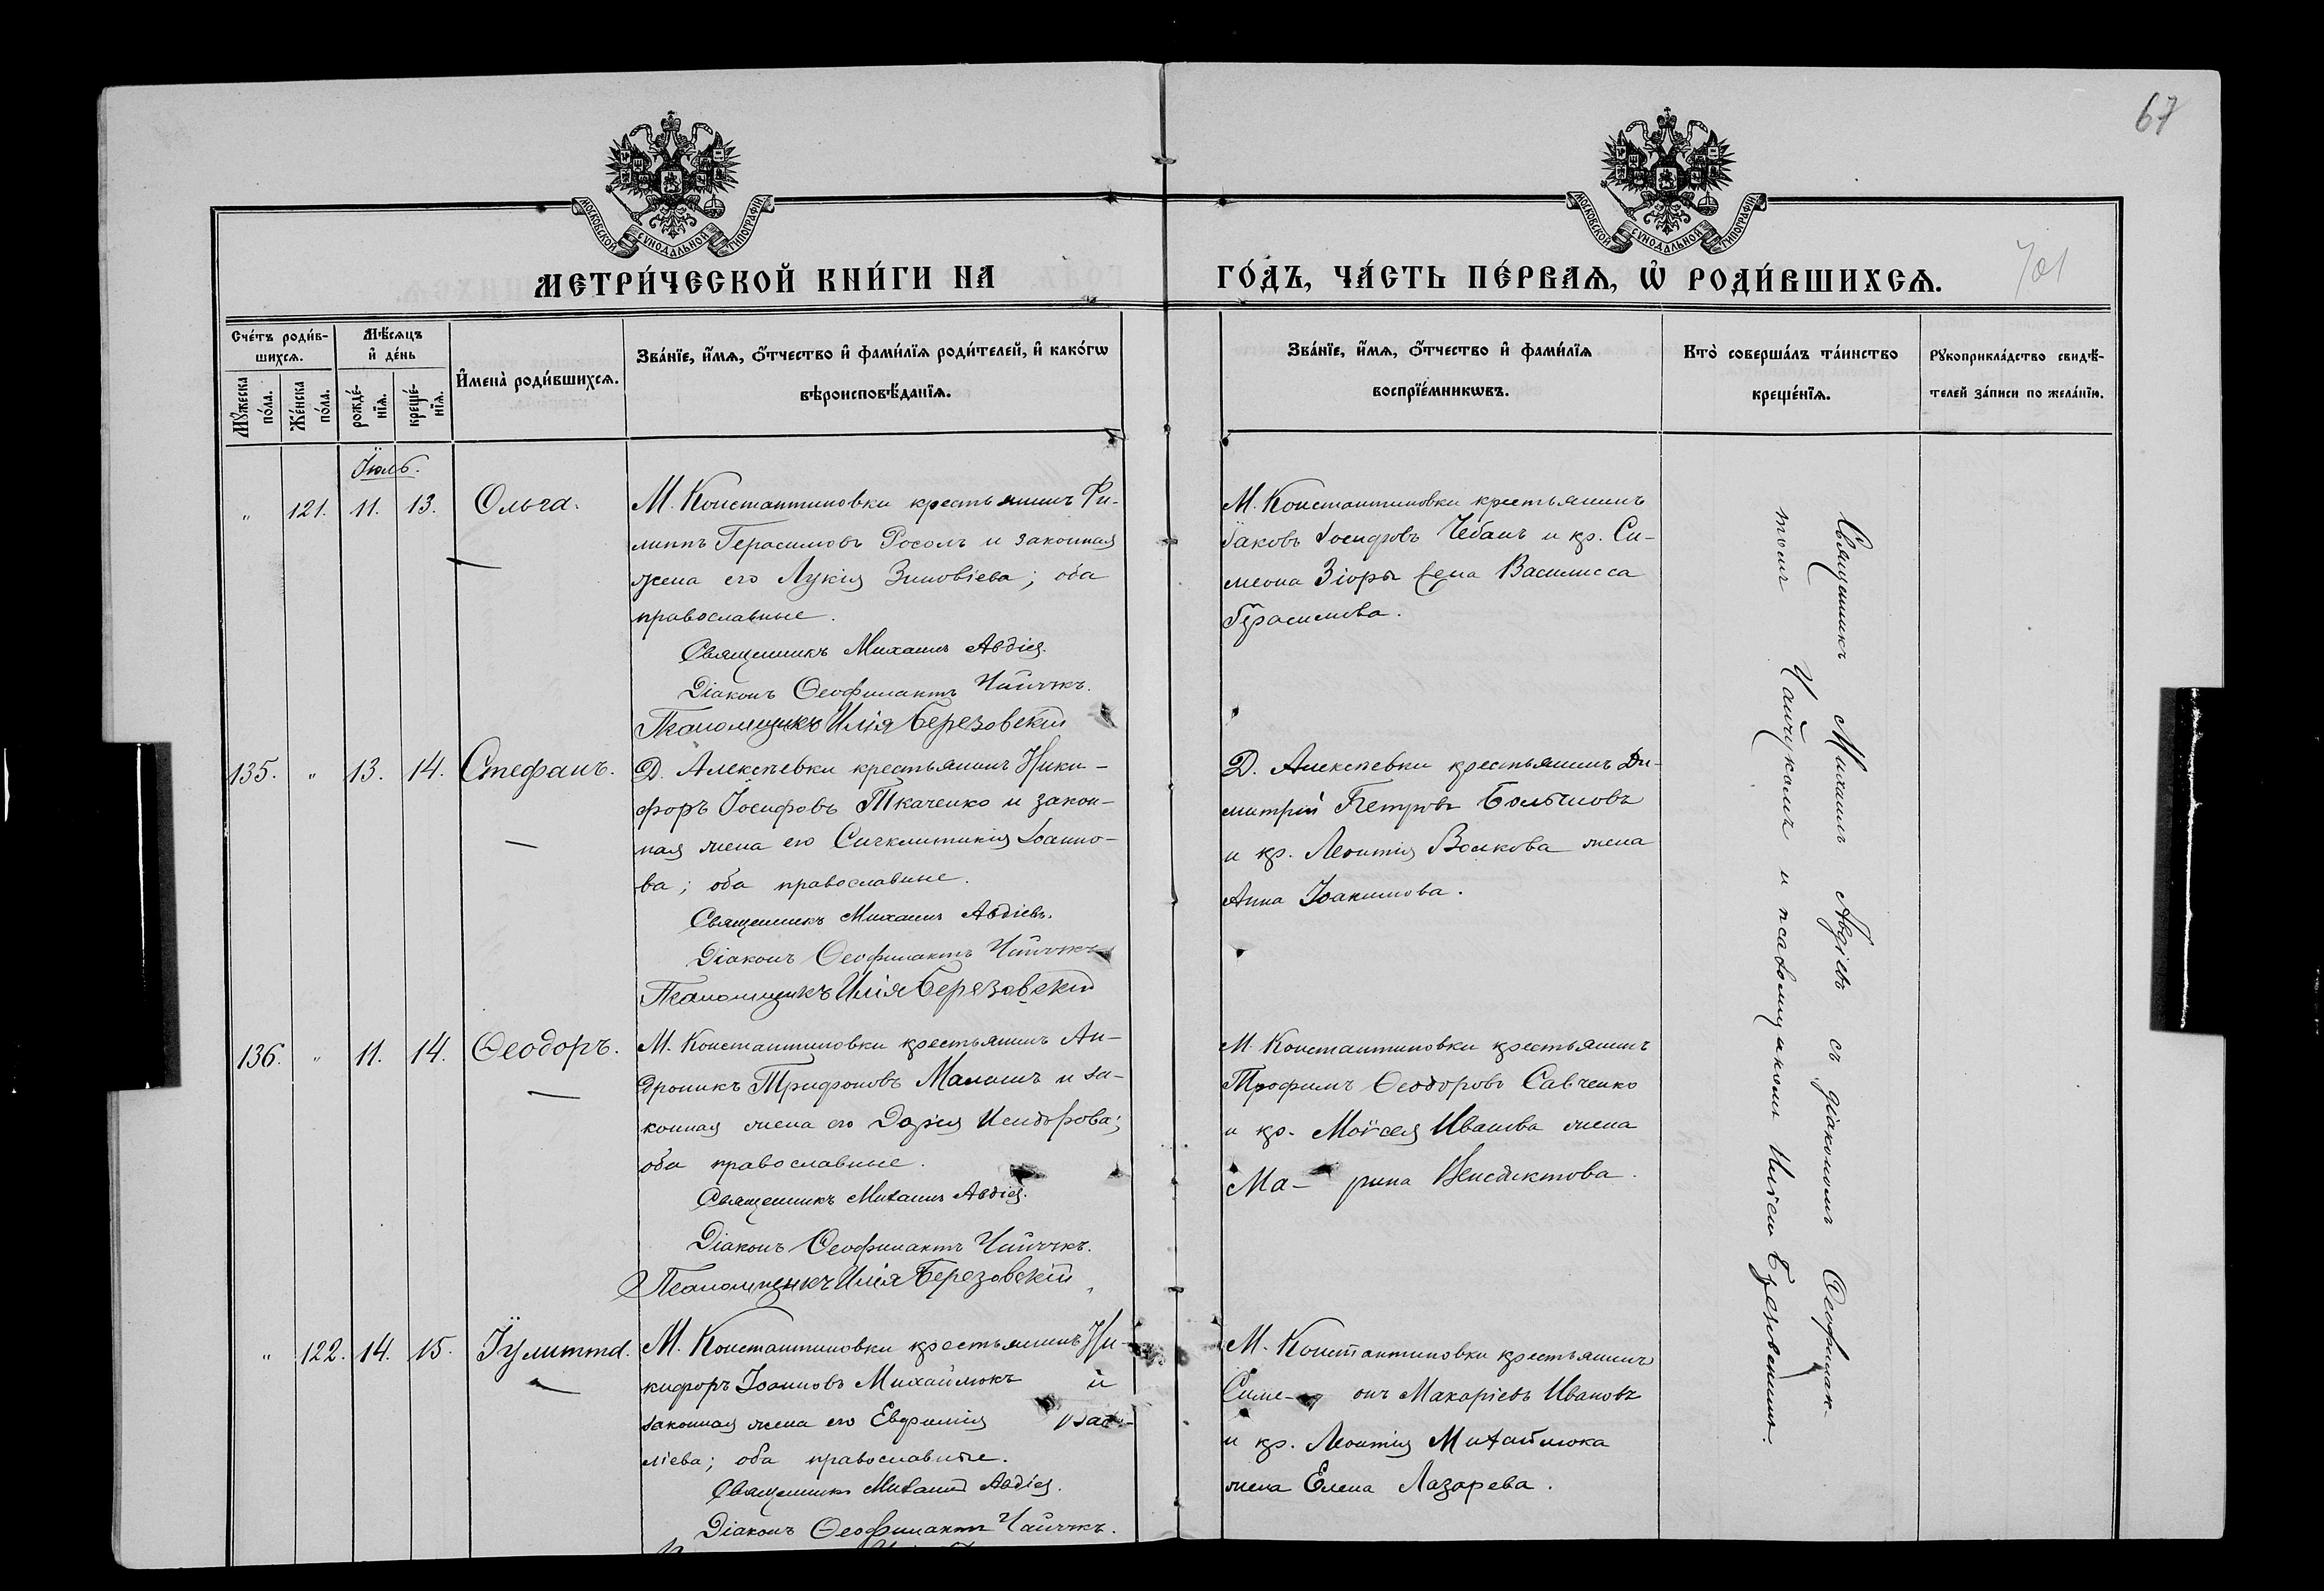 67
701
МОСКОВСКОЙ СУНОДАЛЬНОЙ ТИПОГРАФІИ
МОСКОВСКОЙ СУНОДАЛЬНОЙ ТИПОГРАФІИ
МЕТРИ́ЧЕСКОЙ КНИ́ГИ НА
ГО́ДЪ, ЧА́СТЬ ПЕ́РВАѦ, Ѡ҆ РОДИ́ВШИХСѦ.
Сче́тъ роди́в-
шихсѧ.
Мꙋ́жеска по́ла.
Же́нска по́ла.
Мѣ́сѧцъ
и҆ де́нь
рожде́-
нїѧ.
креще́-
нїѧ.
И҆мена̀ роди́вшихсѧ.
Зва́нїе, и҆́мѧ, ѻ҆́тчество и҆ фами́лїѧ роди́телей, и҆ како́гѡ
вѣроисповѣ́данїѧ.
Зва́нїе, и҆́мѧ, ѻ҆́тчество и҆ фами́лїѧ
воспрїе́мникѡвъ.
Кто̀ соверша́лъ та́инство
креще́нїѧ.
Рꙋкоприкла́дство свидѣ́-
телей за́писи по жела́нїю.
Іюль.
" 121. 11. 13. Ольга.
М. Константиновки крестьянинъ Фи-
липпъ Герасимовъ Росолъ и законная
жена его Лукія Зиновіева; оба
православные.
Священникъ Михаилъ Авдіев.
Діаконъ Ѳеофилактъ Чайчукъ.
Псаломщикъ Илія Березовскій
М. Константиновки крестьянинъ
Іаковъ Іосифовъ Чебанъ и кр. Си-
меона Зіоры жена Василисса
Герасимова.
135. " 13. 14. Стефанъ.
Д. Алексѣевки крестьянинъ Ники-
форъ Іосифовъ Ткаченко и закон-
ная жена его Синклитикія Іоанно-
ва; оба православные.
Священникъ Михаилъ Авдіевъ.
Діаконъ Ѳеофилактъ Чайчукъ
Псаломщикъ Илія Березовскій
Д. Алексѣевки крестьянинъ Ди-
митрій Петровъ
и кр. Леонтія Волкова жена
Анна Іоакимова.
136. " 11. 14. Ѳеодоръ.
М. Константиновки крестьянинъ Ан-
дроникъ Трифоновъ Малошъ и за-
конная жена его Дарія Исидорова;
оба православные.
Священникъ Михаилъ Авдіев.
Діаконъ Ѳеофилактъ Чайчукъ.
Псаломщикъ Илія Березовскій
М. Константиновки крестьянинъ
Трофимъ Ѳеодоровъ Савченко
и кр. Моѵсея Иванова жена
Ма- рина Венедиктова.
" 122. 14. 15. Іулитта.
М. Константиновки крестьянинъ Ни-
кифоръ Іоанновъ Михайлюкъ и
законная жена его Евфимія Васи-
ліева; оба православные.
Священникъ Михаилъ Авдіев.
Діаконъ Ѳеофилактъ Чайчукъ.
М. Константиновки крестьянинъ
Симе- онъ Макаріевъ Ивановъ
и кр. Леонтія Михайлюка
жена Елена Лазарева.
Священникъ Михаилъ Авдіевъ съ діакономъ Ѳеофилак-
томъ Чайчукомъ и псаломщикомъ Иліею Березовскимъ.